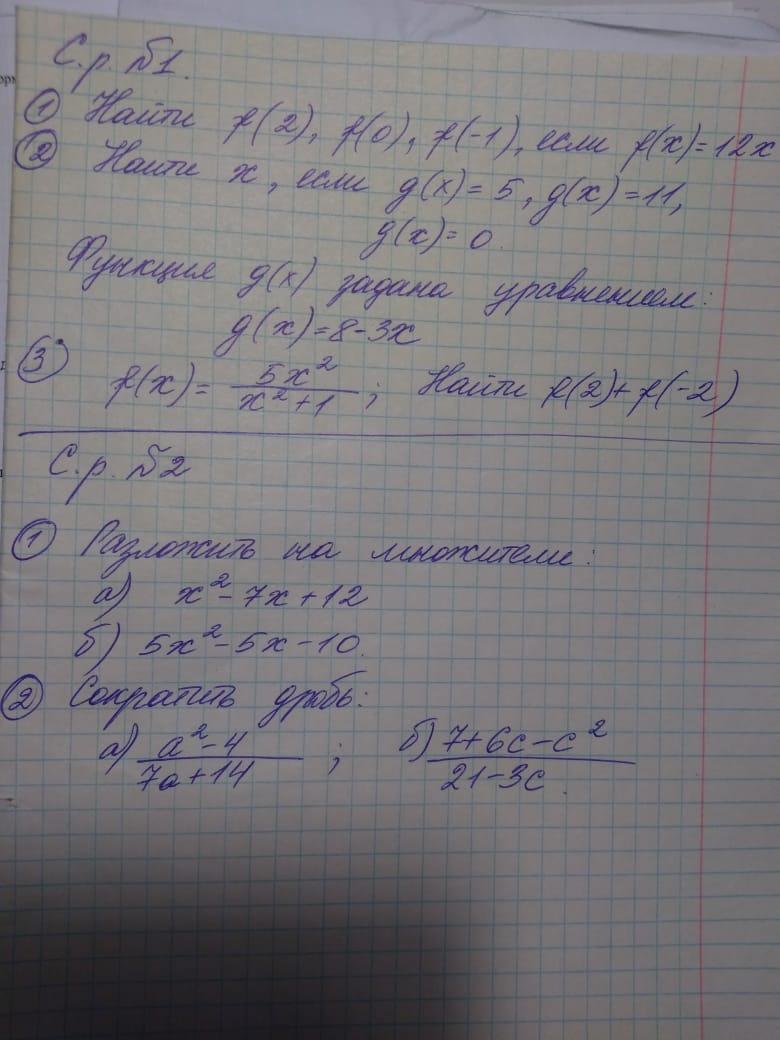 С.р. №1.
① Найти f(2), f(0), f(-1), если f(x)=12x
② Найти x, если g(x)=5, g(x)=11,
g(x)=0.
Функция g(x) задана уравнением:
g(x)=8-3x
③ f(x)= 5x²/(x²+1); Найти f(2)+f(-2)
С.р. №2
① Разложить на множители:
а) x²-7x+12
б) 5x²-5x-10.
② Сократить дробь:
а) (a²-4)/(7a+14) ; б) (7+6c-c²)/(21-3c).